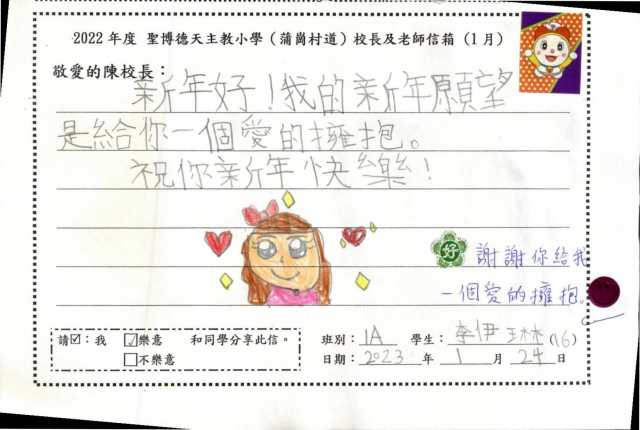 2022 年度 聖博德天主教小學（蒲崗村道）校長及老師信箱（1 月）
敬愛的陳校長：
新年好！我的新年願望
是給你一個愛的擁抱。
祝你新年快樂！
好
謝謝你給我
一個愛的擁抱。
請☑：我 ☑樂意 和同學分享此信。
□不樂意
班別：1A 學生：李伊琳 (16)
日期：2023 年 1 月 24 日